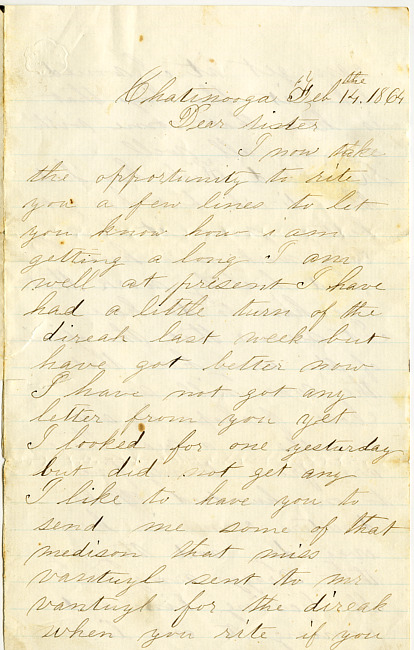 Chatinooga Feb the 14. 1864
Dear sister
I now take
the opportunity to rite
you a few lines to let
you know how i am
getting a long I am
well at present I have
had a little turn of the
direah last week but
have got better now
I have not got any
letter from you yet
I looked for one yesturday
but did not get any
I like to have you to
send me some of that
medison that miss
vantuyl sent to mr
vantuyl for the direak
when you rite if you